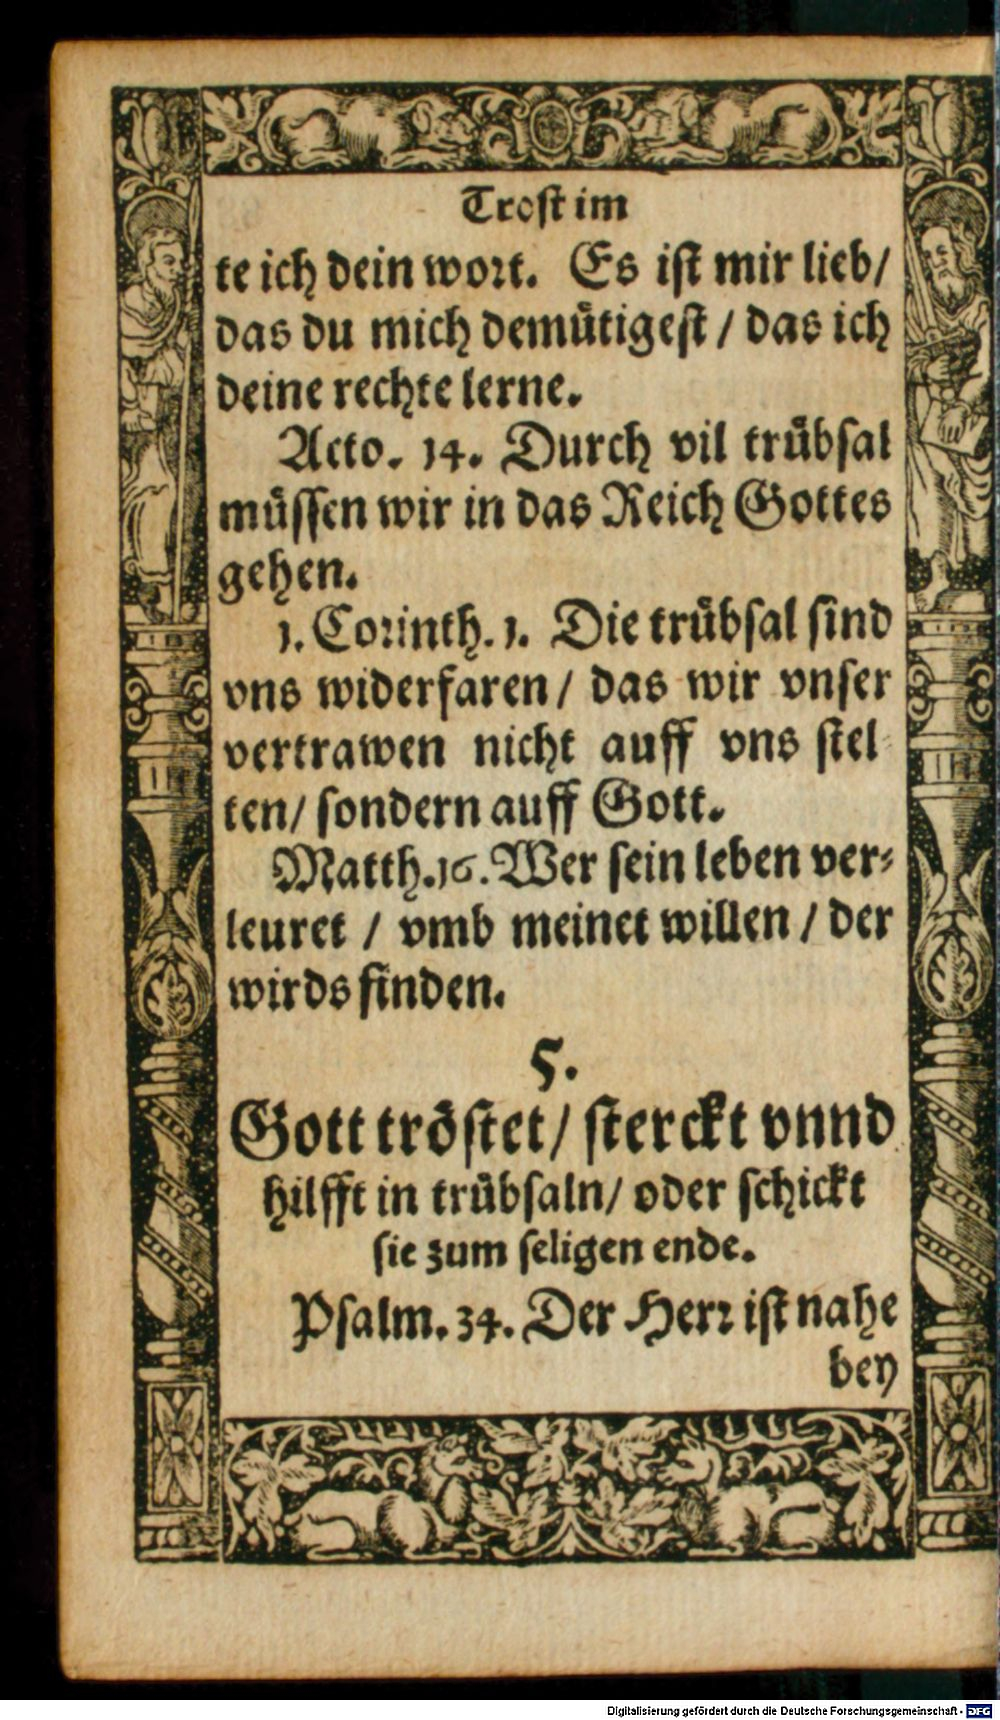 Trost im
te ich dein wort. Es ist mir lieb/
das du mich demütigest / das ich
deine rechte lerne.
Acto. 14. Durch vil trübsal
müssen wir in das Reich Gottes
gehen.
1. Corinth. 1. Die trübsal sind
vns widerfaren / das wir vnser
vertrawen nicht auff vns stel
ten / sondern auff Gott.
Matth. 16. Wer sein leben ver-
leuret / vmb meinet willen / der
wirds finden.
5.
Gott tröstet / sterckt vnnd
hilfft in trübsaln / oder schickt
sie zum seligen ende.
Psalm. 34. Der Herr ist nahe
bey
Digitalisierung gefördert durch die Deutsche Forschungsgemeinschaft - DFG